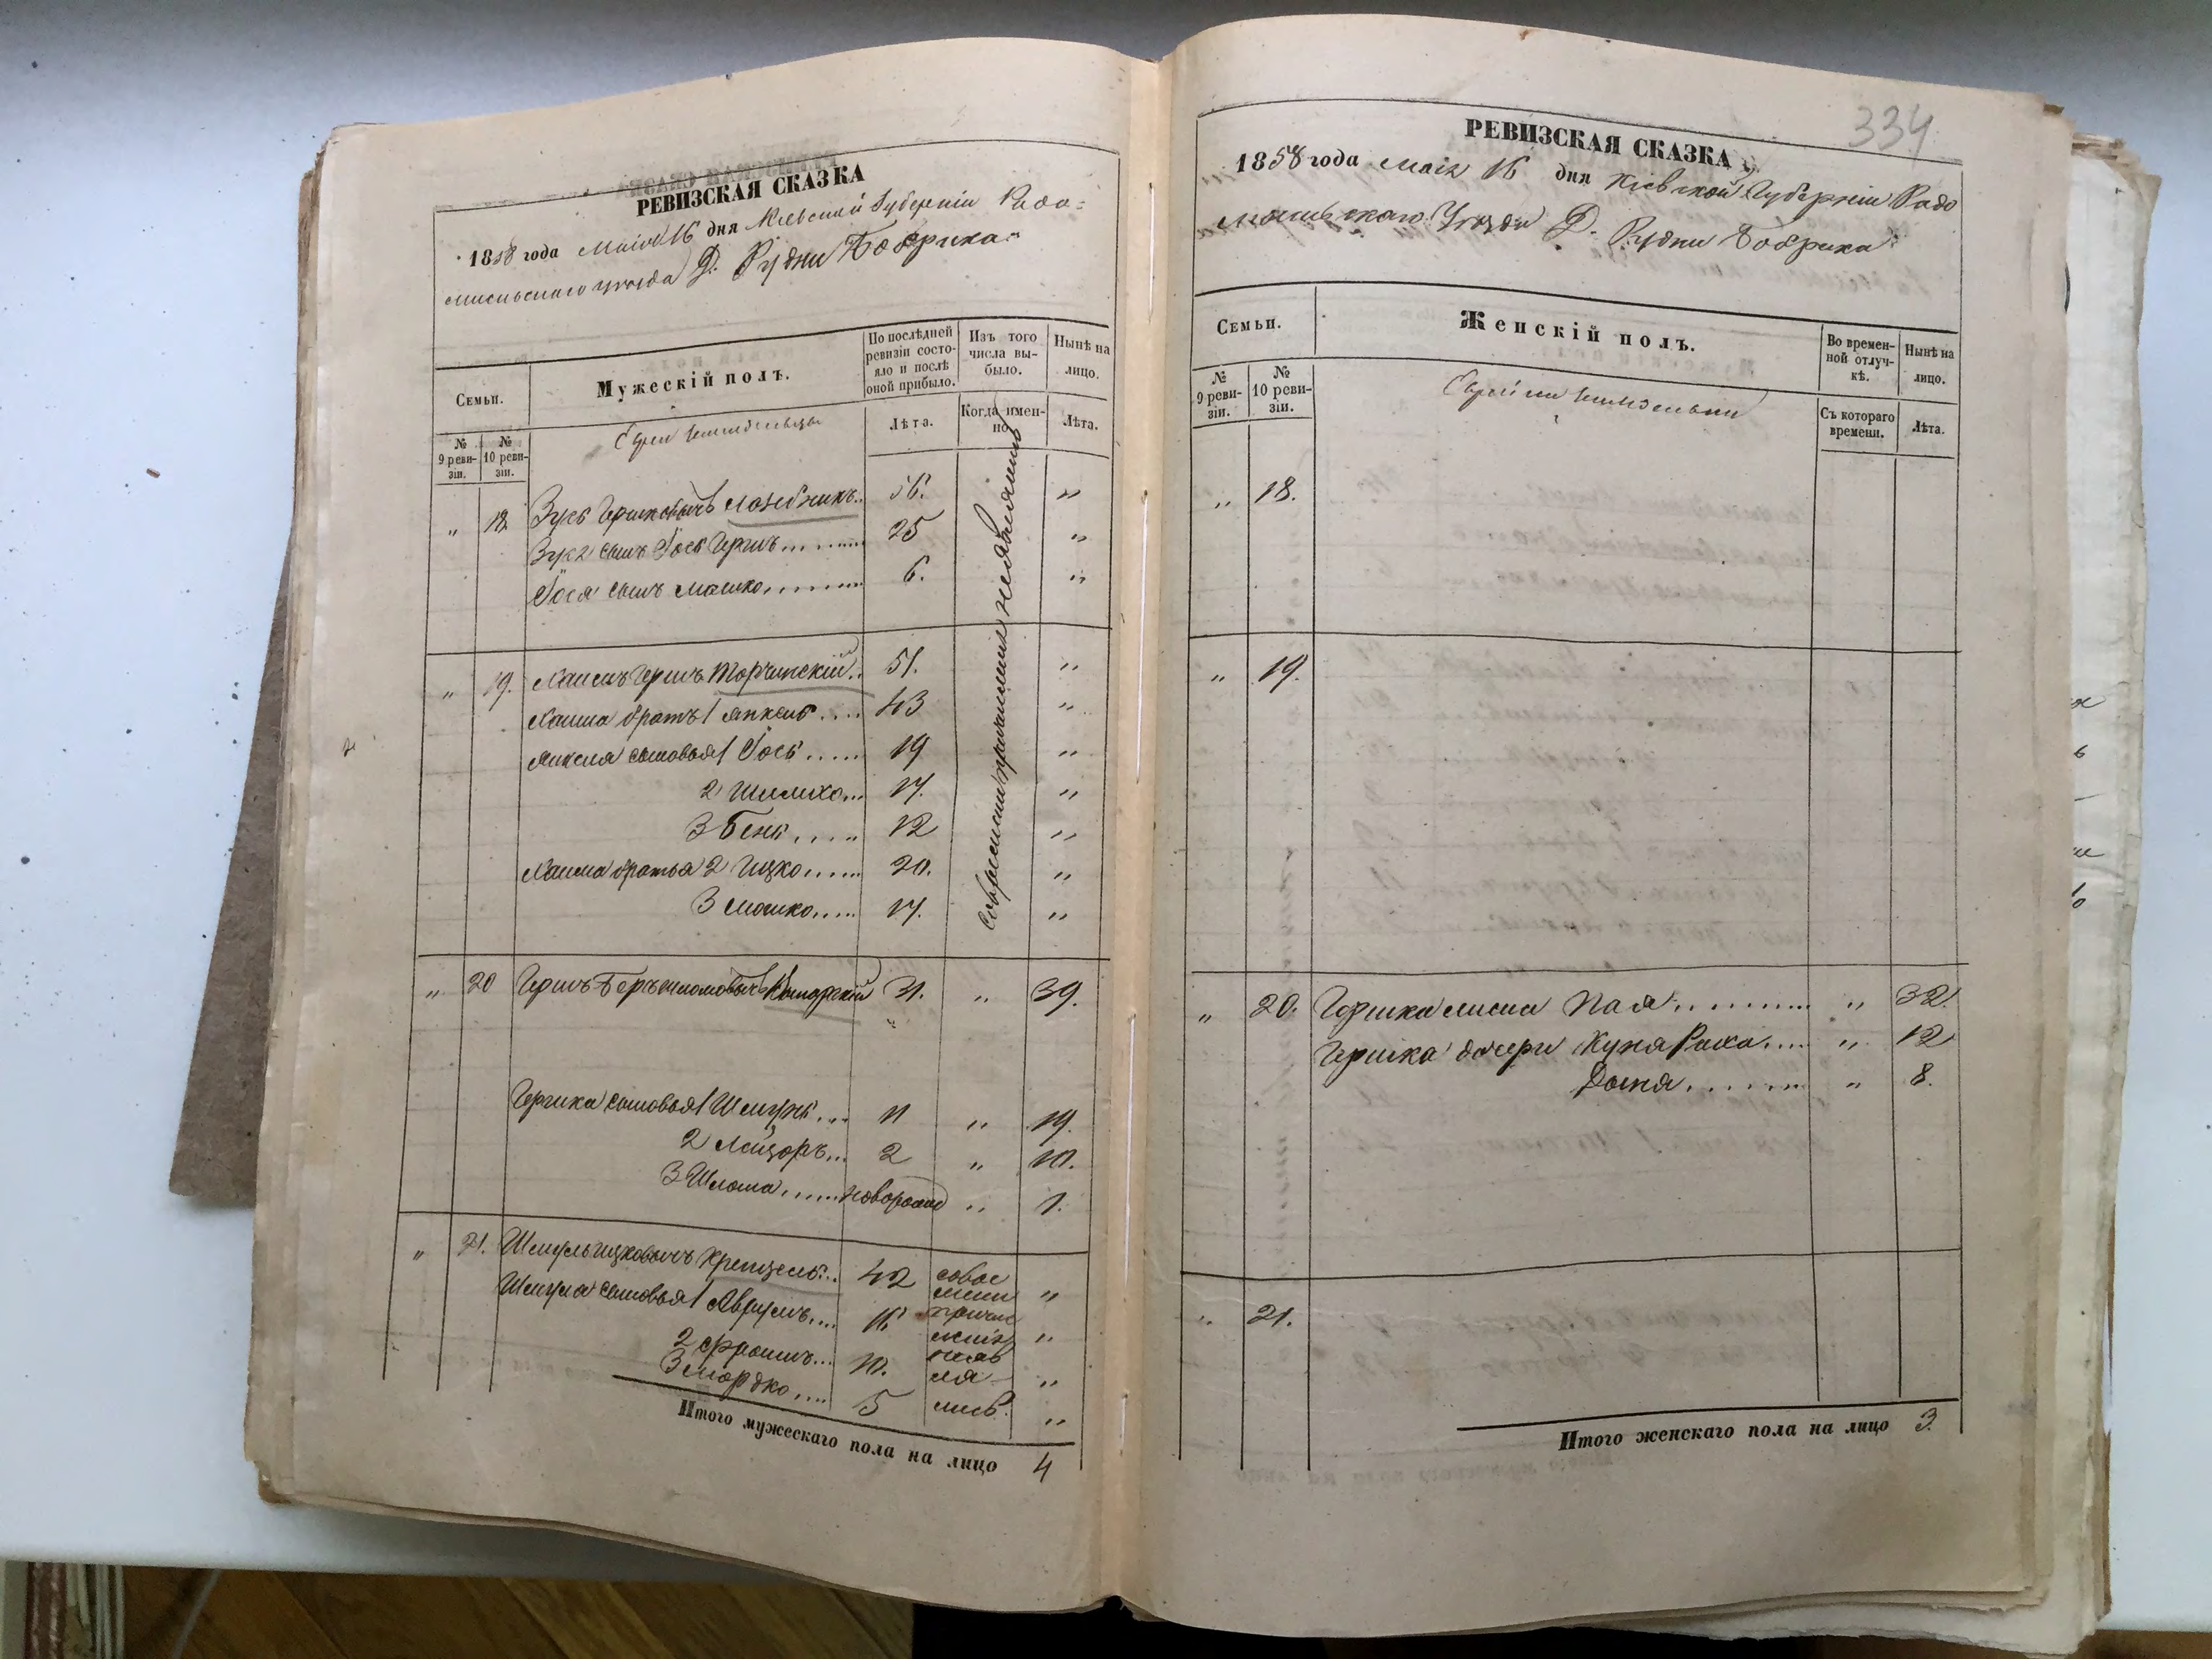 РЕВИЗСКАЯ СКАЗКА
1858 года Маія 16 дня Кіевской Губерніи Радо=
мысльскаго уезда Д. Рудни Бобрика
Семьи.
Мужескій полъ.
По послѣдней ревизіи состояло и послѣ оной прибыло.
Изъ того числа вы-было.
Нынѣ на лицо.
№ 9 реви-зіи.
№ 10 реви-зіи.
Евреи земледельцы
Лѣта.
Когда имен-но
Лѣта.
„ 18. Зусь Гершковичъ Лозебникъ.. 56. „
Зуся сынъ Іось Гершъ......... 25 „
Іося сынъ Мошко......... 6. „
„ 19. Хаимъ Гершъ Торчинскій.. 51. „
Хаима братъ 1 Янкель.... 43 „
Янкеля сыновья 1 Іось..... 19 „
2 Шлиомо... 17. „
3 Бенъ..... 12 „
Хаима братья 2 Ицко...... 20. „
3 Мошко..... 17. „
Современи причисленія неявлялись
„ 20 Гершъ Беръ Шломовичъ 31. „ 39.
Гершка сыновья 1 Шмуль... 11 „ 19.
2 Лейзоръ... 2 „ 10.
3 Шлома...... новорожд „ 1.
„ 21. Шмуль Ицковичъ Крейцель... 42 „
Шмуля сыновья 1 Аврумъ.... 16 „
2 Фроимъ... 10. „
3 Мордко.... 5 „
совре
мени
причи
сленія
неяв
ля
лись.
Итого мужескаго пола на лицо 4
334
РЕВИЗСКАЯ СКАЗКА
1858 года Маія 16 дня Кіевской Губерніи Радо
мысльскаго Уезда Д. Рудни Бобрика
Семьи.
Женскій полъ.
Во времен-ной отлуч-кѣ.
Нынѣ на лицо.
№ 9 реви-зіи.
№ 10 реви-зіи.
Еврейки земледельки
Съ котораго времени.
Лѣта.
„ 18.
„ 19.
„ 20. Гершка жена Хая.......... „ 32.
Гершка дочери Куня Рухля.... „ 12
Доня......... „ 8.
„ 21.
Итого женскаго пола на лицо 3.